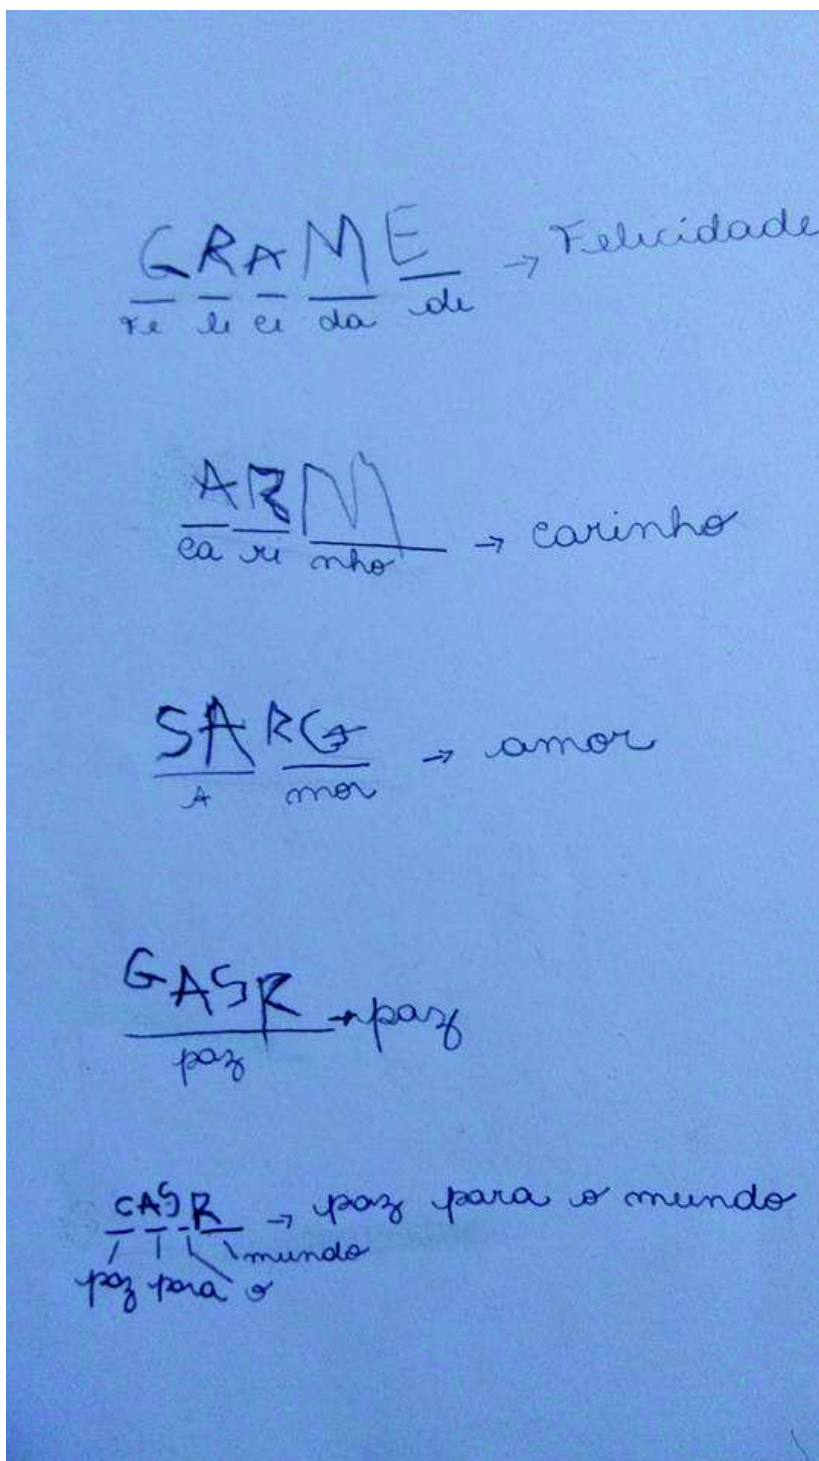 GRAME → Felicidade
Fe li ci da de
ARM → carinho
ca ri nho
SARG → amor
A mor
GASR → paz
paz
CASR → paz para o mundo
paz para o mundo